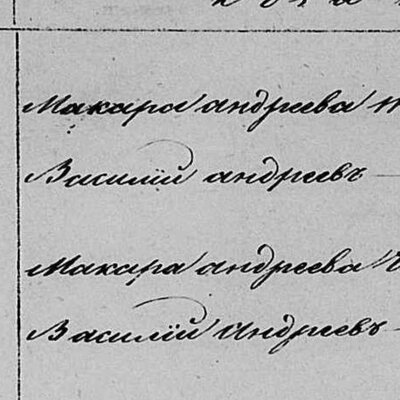 Макара андреева
Василій андреевъ
Макара андреева
Василій Андреевъ